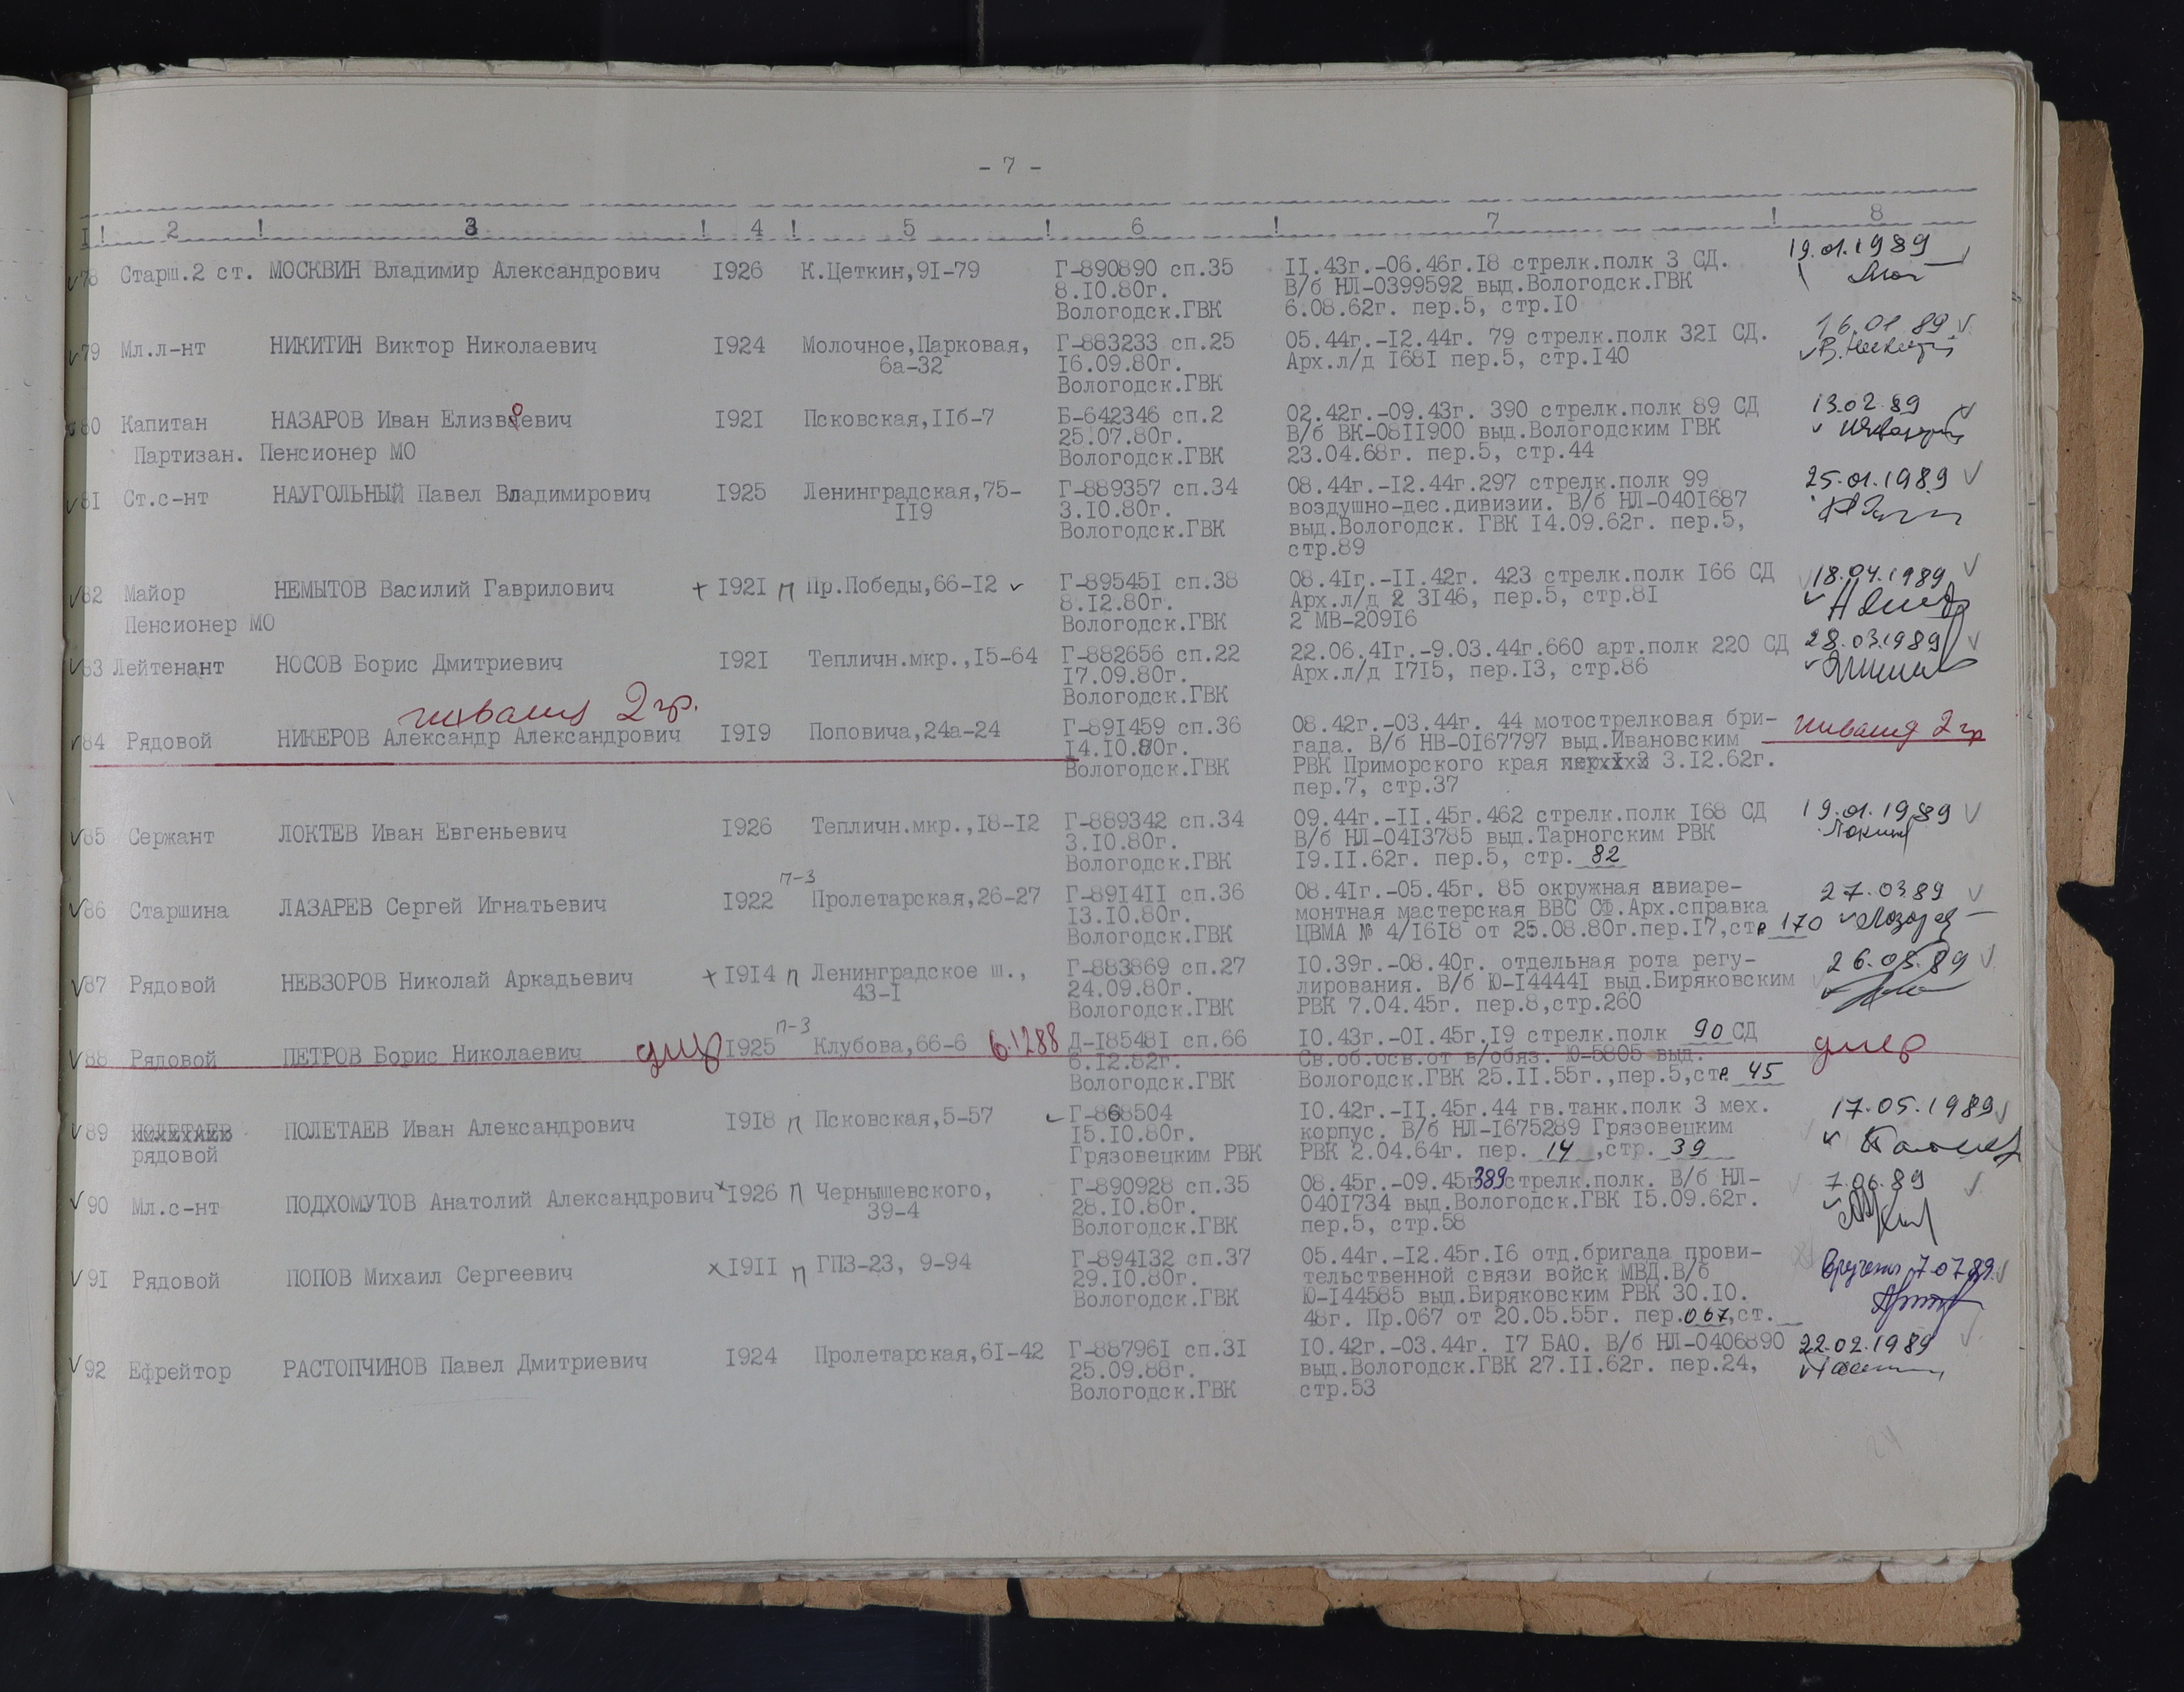 - 7 -
I ! 2 ! 3 ! 4 ! 5 ! 6 ! 7 ! 8
78 Старш.2 ст. МОСКВИН Владимир Александрович 1926 К.Цеткин,91-79 Г-890890 сп.35 11.43г.-06.46г.18 стрелк.полк 3 СД. 19.01.1989
8.10.80г. В/б НЛ-0399592 выд.Вологодск.ГВК
Вологодск.ГВК 6.08.62г. пер.5, стр.10
79 Мл.л-нт НИКИТИН Виктор Николаевич 1924 Молочное,Парковая, Г-883233 сп.25 05.44г.-12.44г. 79 стрелк.полк 321 СД. 16.01.89
6а-32 16.09.80г. Арх.л/д 1681 пер.5, стр.140
Вологодск.ГВК
80 Капитан НАЗАРОВ Иван Елизвоевич 1921 Псковская,11б-7 Б-642346 сп.2 02.42г.-09.43г. 390 стрелк.полк 89 СД 13.02.89
25.07.80г. В/б ВК-0811900 выд.Вологодским ГВК
Партизан. Пенсионер МО Вологодск.ГВК 23.04.68г. пер.5, стр.44
81 Ст.с-нт НАУГОЛЬНЫЙ Павел Владимирович 1925 Ленинградская,75- Г-889357 сп.34 08.44г.-12.44г.297 стрелк.полк 99 25.01.1989
119 3.10.80г. воздушно-дес.дивизии. В/б НЛ-0401687
Вологодск.ГВК выд.Вологодск. ГВК 14.09.62г. пер.5,
стр.89
82 Майор НЕМЫТОВ Василий Гаврилович + 1921 п Пр.Победы,66-12 Г-895451 сп.38 08.41г.-11.42г. 423 стрелк.полк 166 СД 18.04.1989
8.12.80г. Арх.л/д 2 3146, пер.5, стр.81
Пенсионер МО Вологодск.ГВК 2 МВ-20916
83 Лейтенант НОСОВ Борис Дмитриевич 1921 Тепличн.мкр.,15-64 Г-882656 сп.22 22.06.41г.-9.03.44г.660 арт.полк 220 СД 28.03.1989
17.09.80г. Арх.л/д 1715, пер.13, стр.86
Вологодск.ГВК
инвалид 2 гр.
84 Рядовой НИКЕРОВ Александр Александрович 1919 Поповича,24а-24 Г-891459 сп.36 08.42г.-03.44г. 44 мотострелковая бри- инвалид 2 гр
14.10.80г. гада. В/б НВ-0167797 выд.Ивановским
Вологодск.ГВК РВК Приморского края 3.12.62г.
пер.7, стр.37
85 Сержант ЛОКТЕВ Иван Евгеньевич 1926 Тепличн.мкр.,18-12 Г-889342 сп.34 09.44г.-11.45г.462 стрелк.полк 168 СД 19.01.1989
3.10.80г. В/б НЛ-0413785 выд.Тарногским РВК
Вологодск.ГВК 19.11.62г. пер.5, стр. 82
п-3
86 Старшина ЛАЗАРЕВ Сергей Игнатьевич 1922 Пролетарская,26-27 Г-891411 сп.36 08.41г.-05.45г. 85 окружная авиаре- 27.03.89
13.10.80г. монтная мастерская ВВС СФ.Арх.справка
Вологодск.ГВК ЦВМА № 4/1618 от 25.08.80г.пер.17,стр 170
87 Рядовой НЕВЗОРОВ Николай Аркадьевич + 1914 п Ленинградское ш., Г-883869 сп.27 10.39г.-08.40г. отдельная рота регу- 26.05.89
43-1 24.09.80г. лирования. В/б Ю-144441 выд.Биряковским
Вологодск.ГВК РВК 7.04.45г. пер.8,стр.260
п-3
88 Рядовой ПЕТРОВ Борис Николаевич умер 1925 Клубова,66-6 6.1288 Д-185481 сп.66 10.43г.-01.45г.19 стрелк.полк 90 СД умер
6.12.82г. Св.об.осв.от в/обяз. Ю-5805 выд.
Вологодск.ГВК Вологодск.ГВК 25.11.55г.,пер.5,стр. 45
89 ПОЛЕТАЕВ ПОЛЕТАЕВ Иван Александрович 1918 п Псковская,5-57 Г-868504 10.42г.-11.45г.44 гв.танк.полк 3 мех. 17.05.1989
15.10.80г. корпус. В/б НЛ-1675289 Грязовецким
рядовой Грязовецким РВК РВК 2.04.64г. пер. 14 ,стр. 39
90 Мл.с-нт ПОДХОМУТОВ Анатолий Александрович 1926 п Чернышевского, Г-890928 сп.35 08.45г.-09.45г.389 стрелк.полк. В/б НЛ- 7.06.89
39-4 28.10.80г. 0401734 выд.Вологодск.ГВК 15.09.62г.
Вологодск.ГВК пер.5, стр.58
91 Рядовой ПОПОВ Михаил Сергеевич х 1911 п ГПЗ-23, 9-94 Г-894132 сп.37 05.44г.-12.45г.16 отд.бригада прови- Вручено 7.07.89.
29.10.80г. тельственной связи войск МВД.В/б
Вологодск.ГВК Ю-144585 выд.Биряковским РВК 30.10.
48г. Пр.067 от 20.05.55г. пер.067,ст.
92 Ефрейтор РАСТОПЧИНОВ Павел Дмитриевич 1924 Пролетарская,61-42 Г-887961 сп.31 10.42г.-03.44г. 17 БАО. В/б НЛ-0406890 22.02.1989
25.09.88г. выд.Вологодск.ГВК 27.11.62г. пер.24,
Вологодск.ГВК стр.53